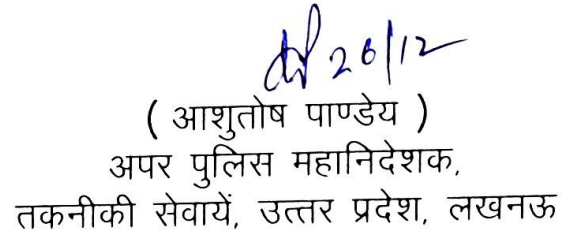 26/12
( आशुतोष पाण्डेय )
अपर पुलिस महानिदेशक,
तकनीकी सेवायें, उत्तर प्रदेश, लखनऊ